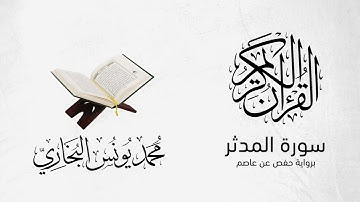 القرآن الكريم
سورة المدثر
برواية حفص عن عاصم
محمد يونس البخاري